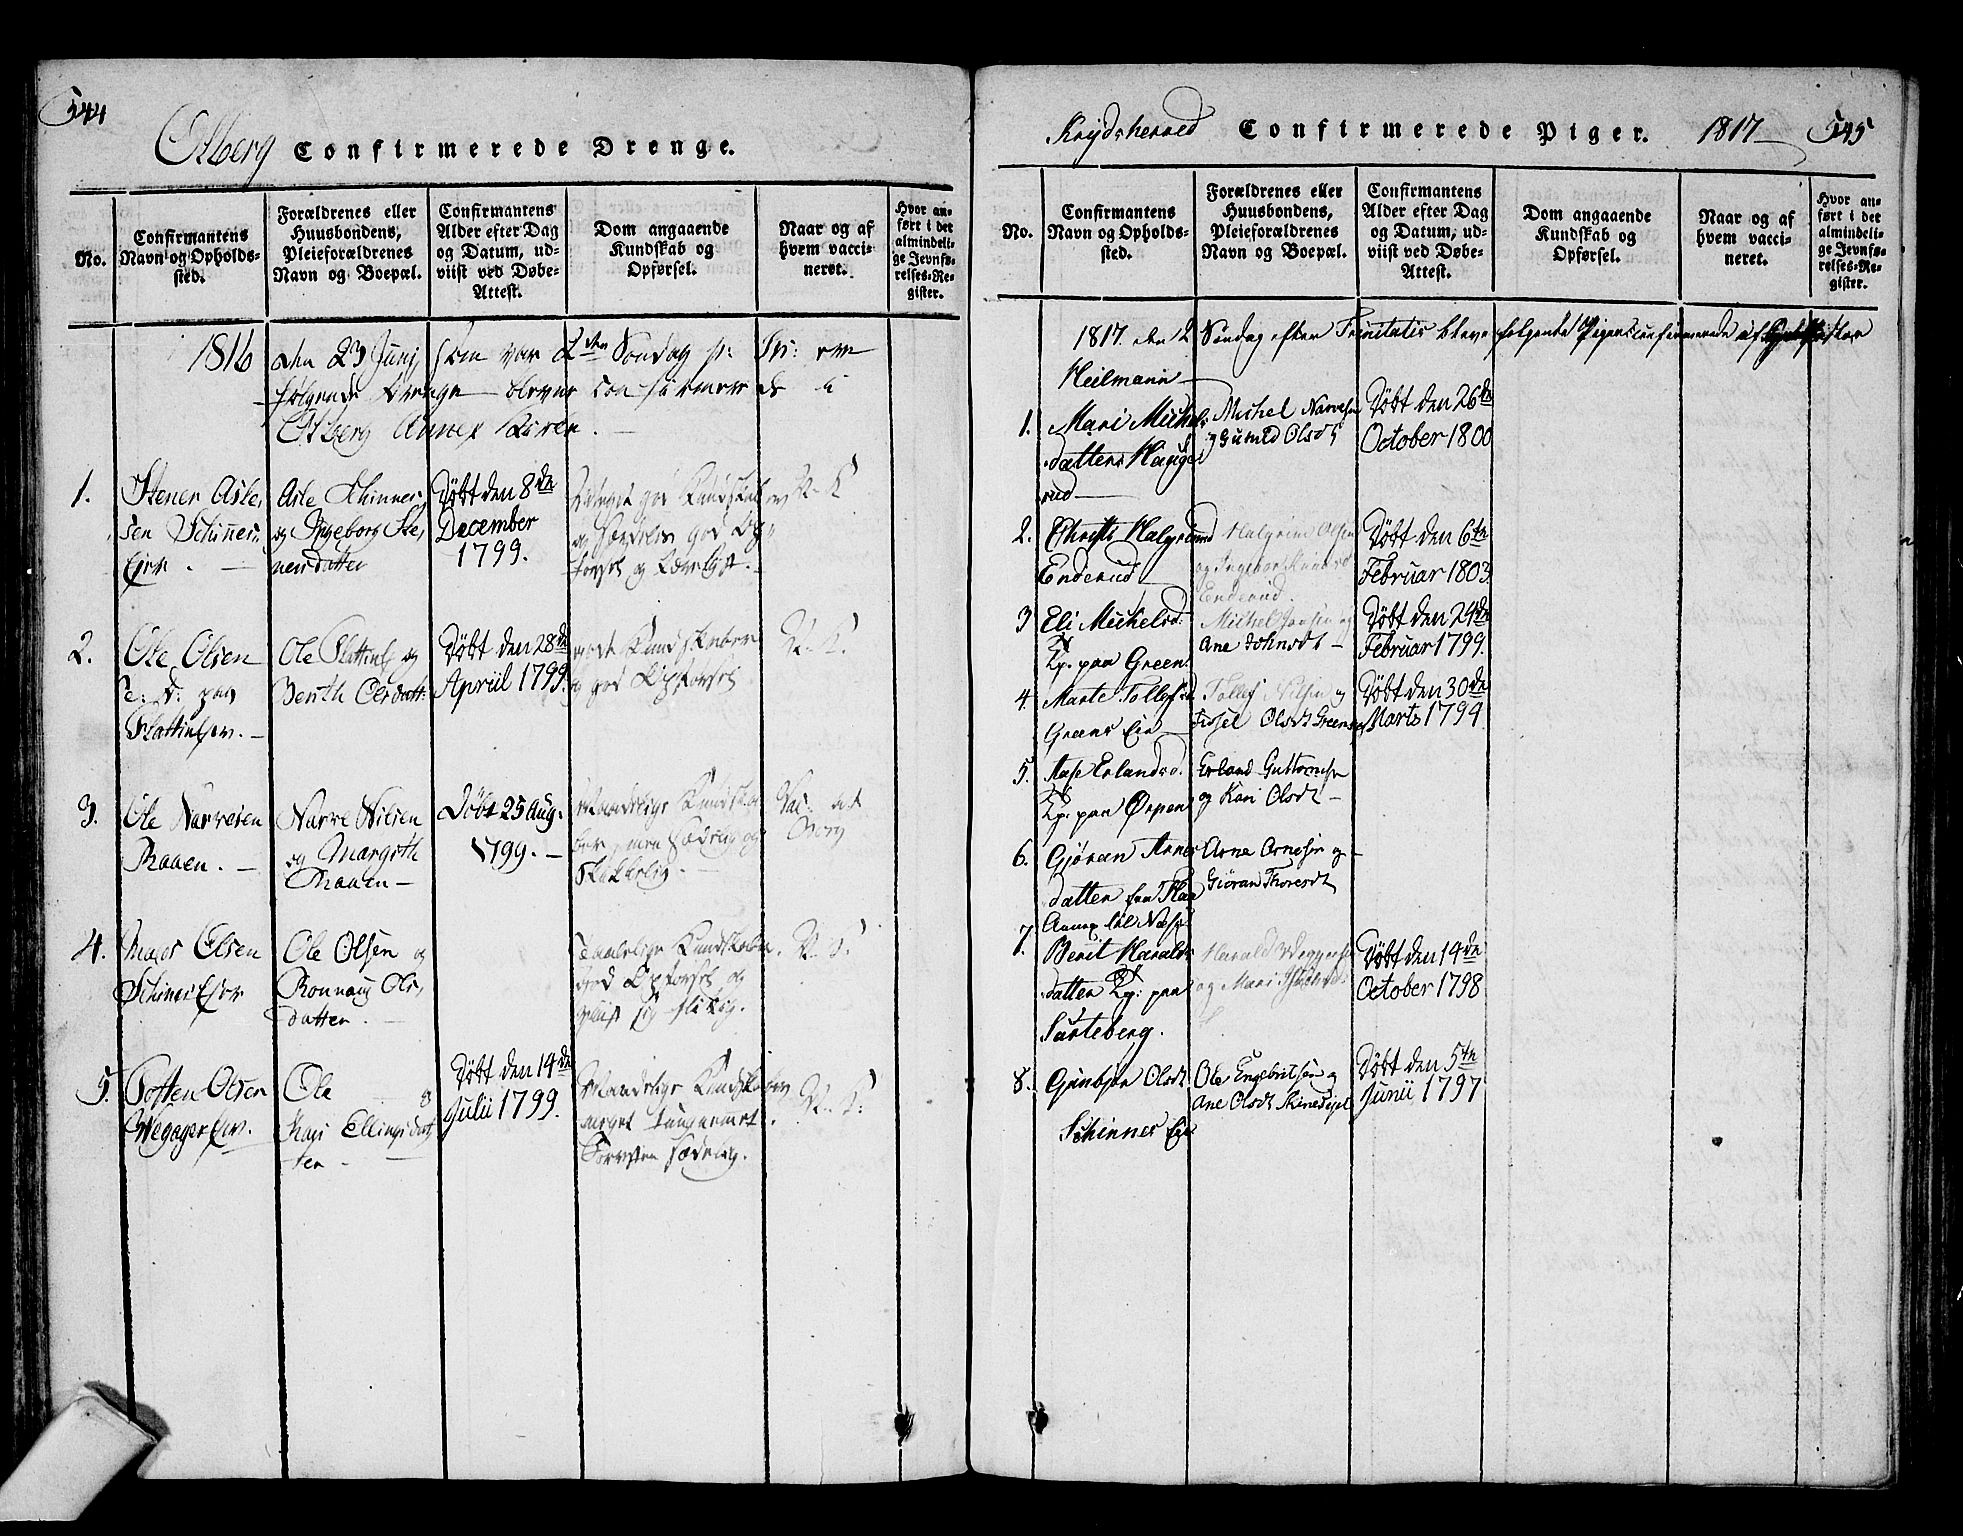 544
Olberg Confirmerede Drenge.
No.
Confirmantens
Navn og Opholds-
sted.
Forældrenes eller
Huusbondens,
Pleieforældrenes
Navn og Boepæl.
Confirmantens
Alder efter Dag
og Datum, ud-
viist ved Døbe-
Attest.
Dom angaaende
Kundskab og
Opførsel.
Naar og af
hvem vacci-
neret.
Hvor an-
ført i det
almindeli-
ge Jevnfø-
relses-Re-
gister.
1816 den 23 Junj som var 2den Søndag p: Tr:
følgende Drenge
Olberg Annex Kirke
1.
Stener Asle
sen Schinnes
Eje.
Asle Schinnes
og Ingeborg Ste
nersdatter
Døbt den 8de
December
1799.
Meget god Kundskab
god Op
førsel og
V. K.
2.
Ole Olsen
paa
Ole
og
Berith Oesdatt:
Døbt den 28de
Apriil 1799.
gode Kundskaber
og god Opførsel
V. K.
3.
Ole Narvesen
Raaen. —
Narve Nilsen
og Margith
Raaen —
Døbt 25 Aug.
1799. —
Maadelige Kundska
ber, men sædelig og
Skikkelig. —
Vac: af
Borg
4.
Olsen
Schines Ejer
Ole Olsen og
Ronnaug Ols
datter. —
Taalelige Kundskaber.
god Opførsel og
sig flittig.
5.
Torsten Olsen
Ole
og
Kari Ellingsdat
ter —
Døbt den 14de
Julii 1799.
Maadelige Kundskaber
meget tungnemt
Forresten sædelig.
Krydsherred Confirmerede Piger. 1817 545
No.
Confirmantens
Navn og Opholds-
sted.
Forældrenes eller
Huusbondens,
Pleieforældrenes
Navn og Boepæl.
Confirmantens
Alder efter Dag
og Datum, ud-
viist ved Døbe-
Attest.
Dom angaaende
Kundskab og
Opførsel.
Naar og af
hvem vacci-
neret.
Hvor an-
ført i det
almindeli-
ge Jevnfø-
relses-Re-
gister.
1817 den 2 Søndag efter Trinitatis bleve følgende Piger confirmerede af
Heilmann —
1.
Mari Michels
datter Hauge
rud —
Michel Narvesen
og Gunild Olsdt
Døbt den 26de
October 1800
2.
Christi Halgrimd
Enderud
Halgrim Olsen
og Ingebor Knudsd
Enderud.
Døbt den 6te
Februar 1803.
3
Eli Michelsd.
Pl. paa Green.
Michel Jensen og
Ane Johnsdt —
Døbt den 24de
Februar 1799.
4.
Marte Tollefsd
Greens Eie —
Tollef Nilsen og
Sissel Olsdt Greense
Døbt den 30de
Marts 1799
5.
Aase Erlandsd.
Pl. paa Ørpen
Erland Guttormsen
og Kari Olsdt —
6.
Gjøran Arnes
datter fra
Arne Arnesen og —
Giøran Thoresdt
7.
Berit Haralds
datter Pl: paa
Surteberg.
Harald Weggersen
og Mari
Døbt den 14de
October 1798
8.
Gunbjør Olsdt
Schinnes Eje
Ole Engebritsen og
Ane Olsdt Skineseyet
Døbt den 5te
Junii 1797